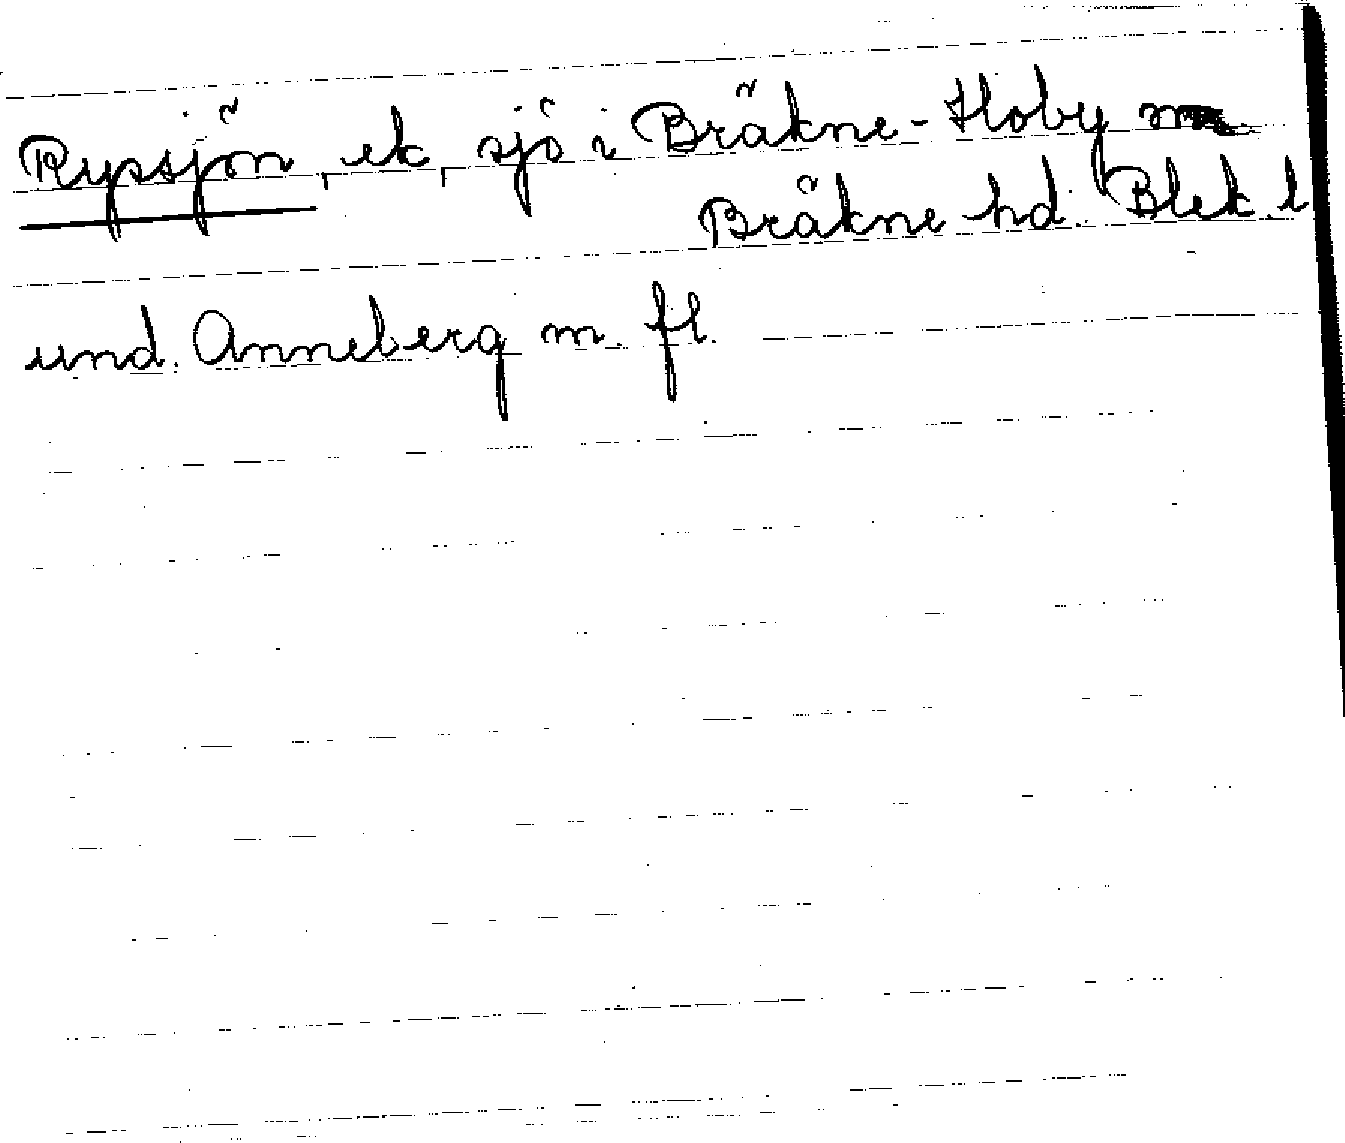 Rypsjön, ek, sjö i Bräkne-Hoby
Bräkne hd. Blek. l
und. Anneberg m. fl.